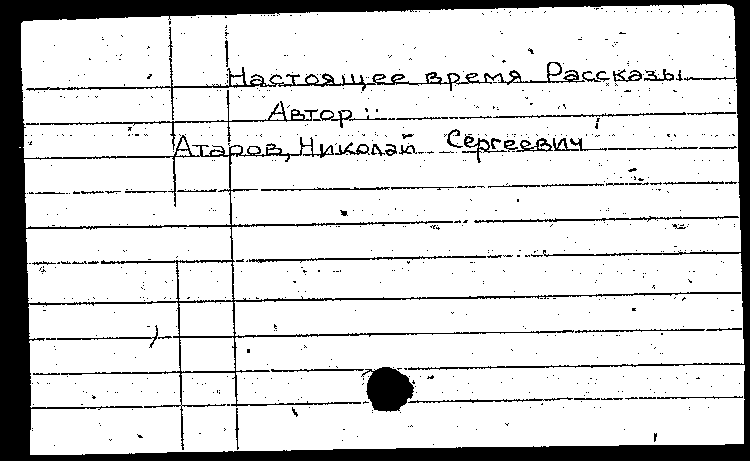 Настоящее время Рассказы
Автор::
Атаров, Николай Сергеевич